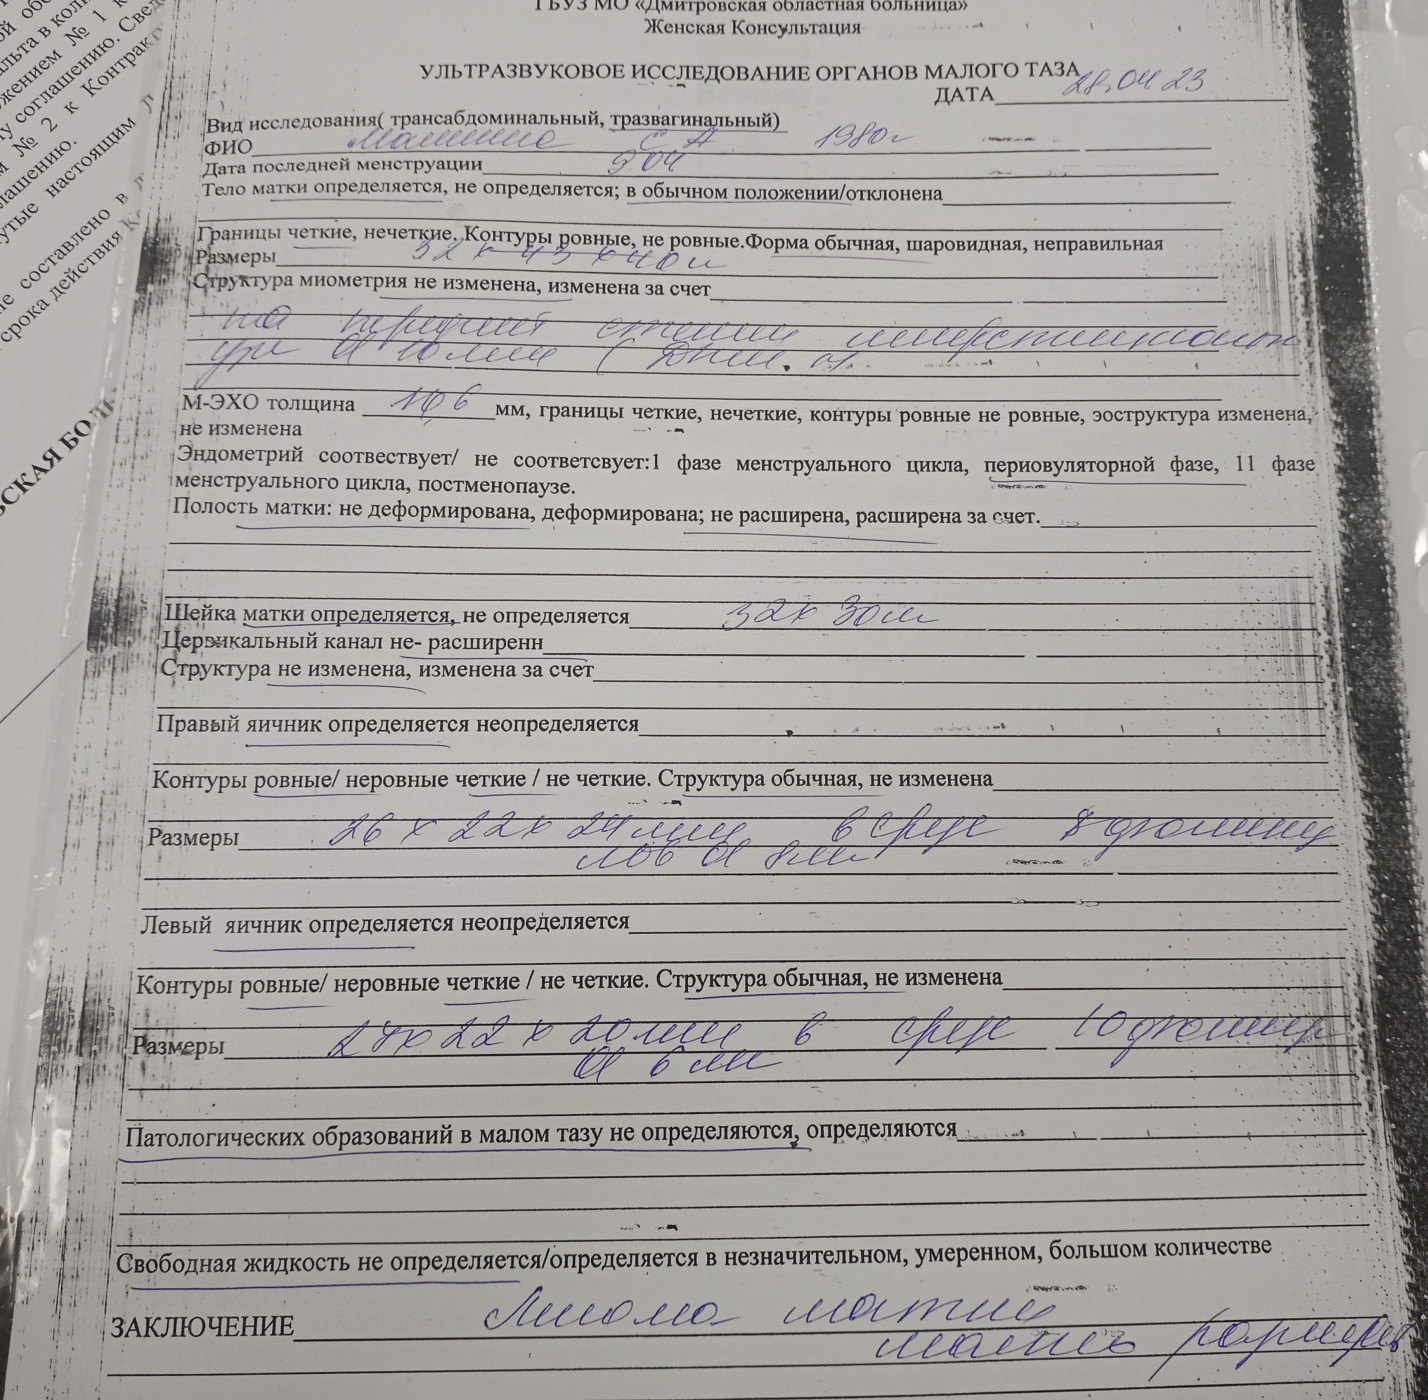 ГБУЗ МО «Дмитровская областная больница»
Женская Консультация
УЛЬТРАЗВУКОВОЕ ИССЛЕДОВАНИЕ ОРГАНОВ МАЛОГО ТАЗА
ДАТА 28.04 23
Вид исследования( трансабдоминальный, тразвагинальный)
ФИО С А 1980г
Дата последней менструации 9 04
Тело матки определяется, не определяется; в обычном положении/отклонена
Границы четкие, нечеткие. Контуры ровные, не ровные.Форма обычная, шаровидная, неправильная
Размеры 52 х 43 х 40м
Структура миометрия не изменена, изменена за счет
на передней стенке
узел d 10 мм (
М-ЭХО толщина 10,6 мм, границы четкие, нечеткие, контуры ровные не ровные, эоструктура изменена,
не изменена
Эндометрий соотвествует/ не соответсвует:1 фазе менструального цикла, периовуляторной фазе, 11 фазе
менструального цикла, постменопаузе.
Полость матки: не деформирована, деформирована; не расширена, расширена за счет.
Шейка матки определяется, не определяется 32х 30м
Цервикальный канал не- расширенн
Структура не изменена, изменена за счет
Правый яичник определяется неопределяется
Контуры ровные/ неровные четкие / не четкие. Структура обычная, не изменена
Размеры 26 х 22х 24 мм в срезе 8 фоллику
лов d 8мм
Левый яичник определяется неопределяется
Контуры ровные/ неровные четкие / не четкие. Структура обычная, не изменена
Размеры 27х 22 х 20 мм в срезе 10
d 6 мм
Патологических образований в малом тазу не определяются, определяются
Свободная жидкость не определяется/определяется в незначительном, умеренном, большом количестве
ЗАКЛЮЧЕНИЕ Миома матки
малых размеров